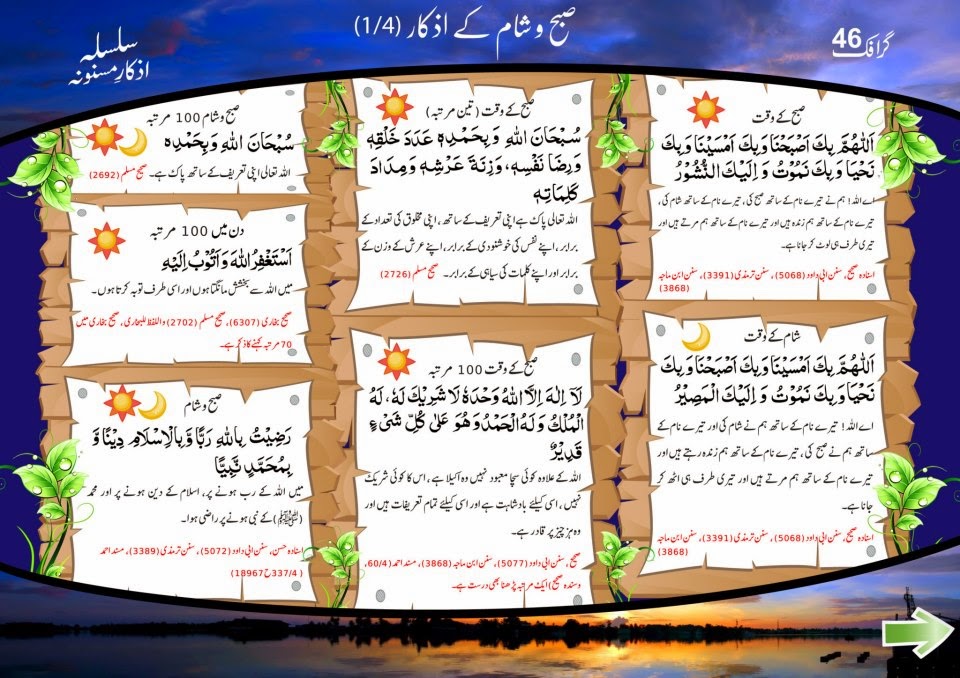 صبح و شام کے اذکار (1/4)
گرافک 46
سلسلہ
اذکارِ مسنونہ
صبح کے وقت
اَللّٰهُمَّ بِكَ اَصْبَحْنَا وَبِكَ اَمْسَيْنَا وَبِكَ
نَحْيَا وَبِكَ نَمُوْتُ وَ اِلَيْكَ النُّشُوْرُ
اے اللہ! ہم نے تیرے نام کے ساتھ صبح کی، تیرے نام کے ساتھ شام کی،
تیرے نام کے ساتھ ہم زندہ ہیں اور تیرے نام کے ساتھ ہم مرتے ہیں اور
تیری طرف ہی لوٹ کر جانا ہے۔
اسنادہ صحیح، سنن ابی داود (5068)، سنن ترمذی (3391)، سنن ابن ماجہ
(3868)
شام کے وقت
اَللّٰهُمَّ بِكَ اَمْسَيْنَا وَبِكَ اَصْبَحْنَا وَبِكَ
نَحْيَا وَبِكَ نَمُوْتُ وَ اِلَيْكَ الْمَصِيْرُ
اے اللہ! تیرے نام کے ساتھ ہم نے شام کی اور تیرے نام کے
ساتھ ہم نے صبح کی، تیرے نام کے ساتھ ہم زندہ رہتے ہیں اور
تیرے نام کے ساتھ ہم مرتے ہیں اور تیری طرف ہی اٹھ کر
جانا ہے۔
اسنادہ صحیح، سنن ابی داود (5068)، سنن ترمذی (3391)، سنن ابن ماجہ
(3868)
صبح کے وقت (تین مرتبہ)
سُبْحَانَ اللّٰهِ وَ بِحَمْدِهٖ عَدَدَ خَلْقِهٖ
وَ رِضَا نَفْسِهٖ، وَ زِنَةَ عَرْشِهٖ وَ مِدَادَ
كَلِمَاتِهٖ
اللہ تعالی پاک ہے اپنی تعریف کے ساتھ، اپنی مخلوق کی تعداد کے
برابر، اپنے نفس کی خوشنودی کے برابر، اپنے عرش کے وزن کے
برابر اور اپنے کلمات کی سیاہی کے برابر۔ صحیح مسلم (2726)
صبح کے وقت 100 مرتبہ
لَآ اِلٰهَ اِلَّا اللّٰهُ وَحْدَهٗ لَا شَرِيْكَ لَهٗ، لَهُ
الْمُلْكُ وَ لَهُ الْحَمْدُ وَ هُوَ عَلٰى كُلِّ شَيْءٍ
قَدِيْرٌ
اللہ کے علاوہ کوئی سچا معبود نہیں وہ اکیلا ہے، اس کا کوئی شریک
نہیں، اسی کیلئے بادشاہت ہے اور اسی کیلئے تمام تعریفات ہیں اور
وہ ہر چیز پر قادر ہے۔
صحیح، سنن ابی داود (5077)، سنن ابن ماجہ (3868)، مسند احمد (60/4،
وسندہ صحیح) ایک مرتبہ پڑھنا بھی درست ہے۔
صبح و شام 100 مرتبہ
سُبْحَانَ اللّٰهِ وَبِحَمْدِهٖ
اللہ تعالی اپنی تعریف کے ساتھ پاک ہے۔ صحیح مسلم (2692)
دن میں 100 مرتبہ
اَسْتَغْفِرُ اللّٰهَ وَ اَتُوْبُ اِلَيْهِ
میں اللہ سے بخشش مانگتا ہوں اور اسی طرف توبہ کرتا ہوں۔
صحیح بخاری (6307)، صحیح مسلم (2702) واللفظ للبخاری، صحیح بخاری میں
70 مرتبہ کہنے کا ذکر ہے۔
صبح و شام
رَضِيْتُ بِاللّٰهِ رَبًّا وَّ بِالْاِسْلَامِ دِيْنًا وَّ
بِمُحَمَّدٍ نَّبِيًّا
میں اللہ کے رب ہونے پر، اسلام کے دین ہونے پر اور محمد
(ﷺ) کے نبی ہونے پر راضی ہوا۔
اسنادہ حسن، سنن ابی داود (5072)، سنن ترمذی (3389)، مسند احمد
(337/4 ح 18967)